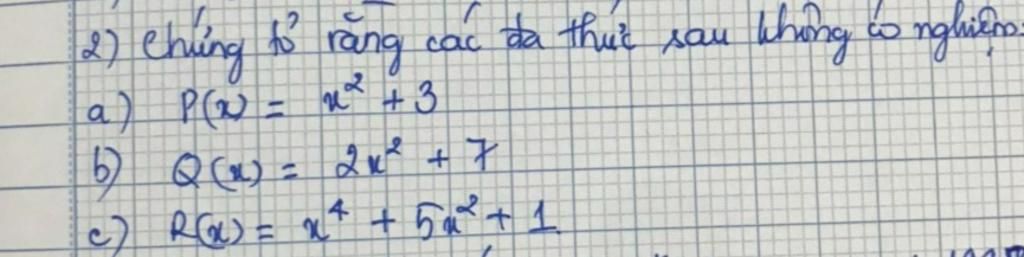 2) Chứng tỏ rằng các đa thức sau không có nghiệm:
a) P(x) = x² + 3
b) Q(x) = 2x² + 7
c) R(x) = x⁴ + 5x² + 1